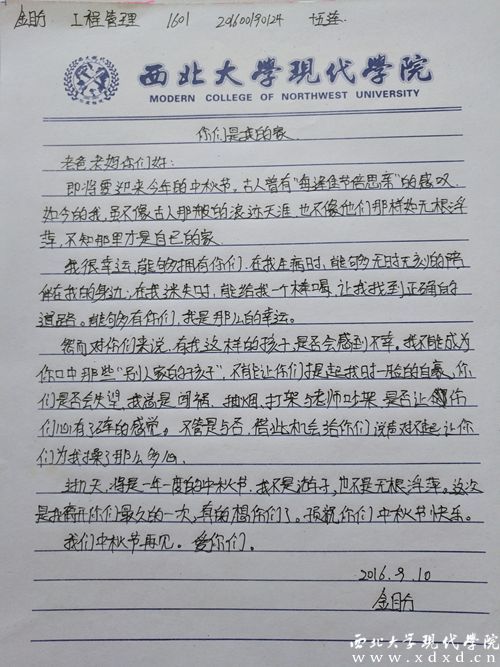 金盼 工程管理 1601 20600190124 伍莲
西北大学现代学院
MODERN COLLEGE OF NORTHWEST UNIVERSITY
你们是我的家.
老爸老妈你们好:
即将要迎来今年的中秋节,古人曾有“每逢佳节倍思亲”的感叹.
如今的我,虽不像古人那般的浪迹天涯,也不像他们那样如无根浮
萍,不知那里才是自己的家.
我很幸运,能够拥有你们.在我生病时,能够无时无刻的陪
伴在我的身边;在我迷失时,能给我一个棒喝,让我找到正确的
道路。能够有你们,我是那么的幸运。
然而对你们来说,有我这样的孩子,是否会感到不幸。我不能成为
你口中那些“别人家的孩子”,不能让你们提起我时一脸的自豪、你
们是否会失望,我总是闯祸、抽烟、打架与老师吵架是否让你
们心有了疼的感觉。不管是与否,借此机会给你们说声对不起让你
们为我操了那么多心.
过几天,将是一年一度的中秋节.我不是游子,也不是无根浮萍。这次
是我离开你们最久的一次,真的想你们了。预祝你们中秋节快乐。
我们中秋节再见。爱你们。
2016.9.10
金盼
西北大学现代学院
www.xdxd.cn